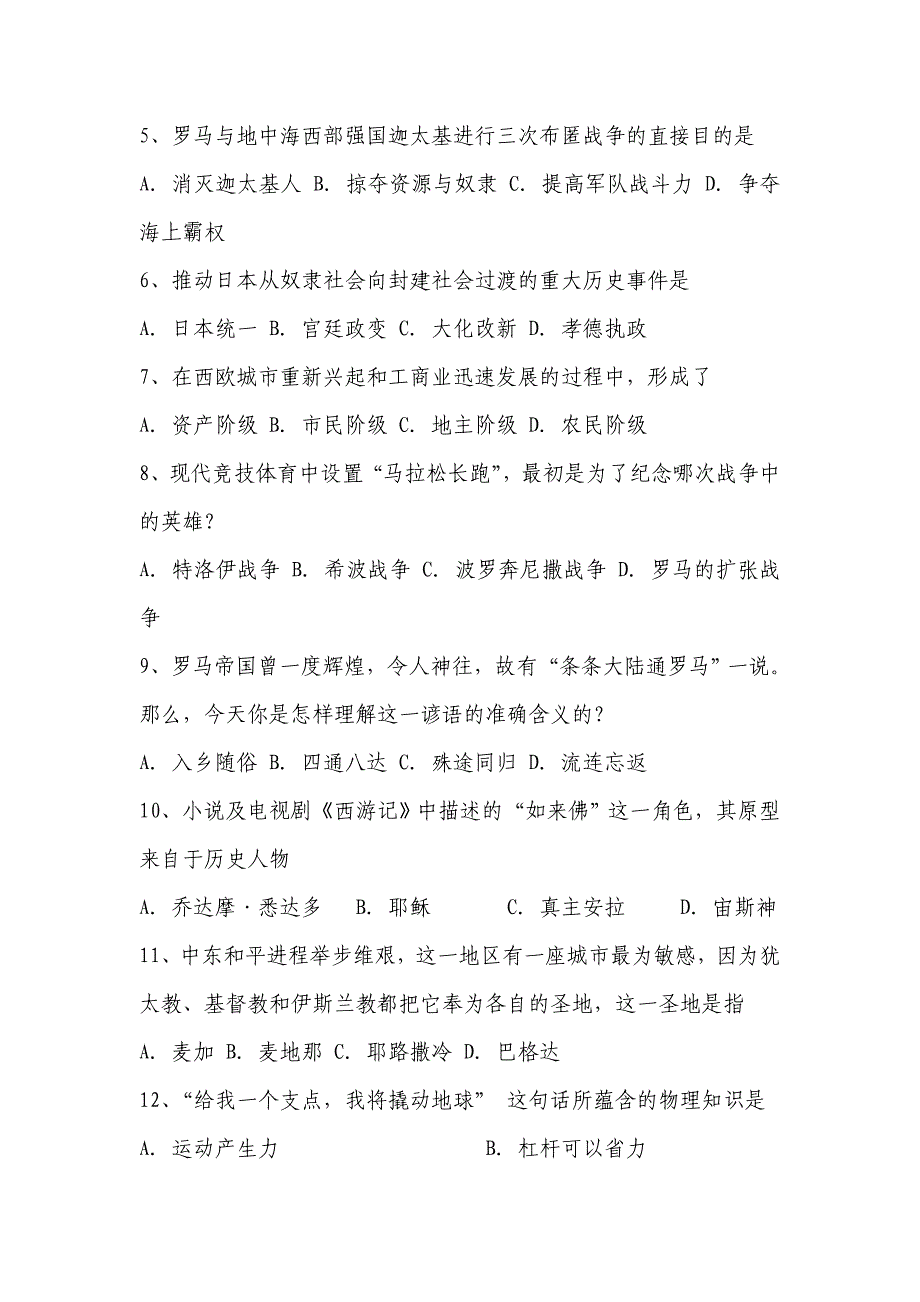 5、罗马与地中海西部强国迦太基进行三次布匿战争的直接目的是
A. 消灭迦太基人 B. 掠夺资源与奴隶 C. 提高军队战斗力 D. 争夺
海上霸权
6、推动日本从奴隶社会向封建社会过渡的重大历史事件是
A. 日本统一 B. 宫廷政变 C. 大化改新 D. 孝德执政
7、在西欧城市重新兴起和工商业迅速发展的过程中，形成了
A. 资产阶级 B. 市民阶级 C. 地主阶级 D. 农民阶级
8、现代竞技体育中设置“马拉松长跑”，最初是为了纪念哪次战争中
的英雄？
A. 特洛伊战争 B. 希波战争 C. 波罗奔尼撒战争 D. 罗马的扩张战
争
9、罗马帝国曾一度辉煌，令人神往，故有“条条大陆通罗马”一说。
那么，今天你是怎样理解这一谚语的准确含义的？
A. 入乡随俗 B. 四通八达 C. 殊途同归 D. 流连忘返
10、小说及电视剧《西游记》中描述的“如来佛”这一角色，其原型
来自于历史人物
A. 乔达摩·悉达多 B. 耶稣 C. 真主安拉 D. 宙斯神
11、中东和平进程举步维艰，这一地区有一座城市最为敏感，因为犹
太教、基督教和伊斯兰教都把它奉为各自的圣地，这一圣地是指
A. 麦加 B. 麦地那 C. 耶路撒冷 D. 巴格达
12、“给我一个支点，我将撬动地球” 这句话所蕴含的物理知识是
A. 运动产生力 B. 杠杆可以省力